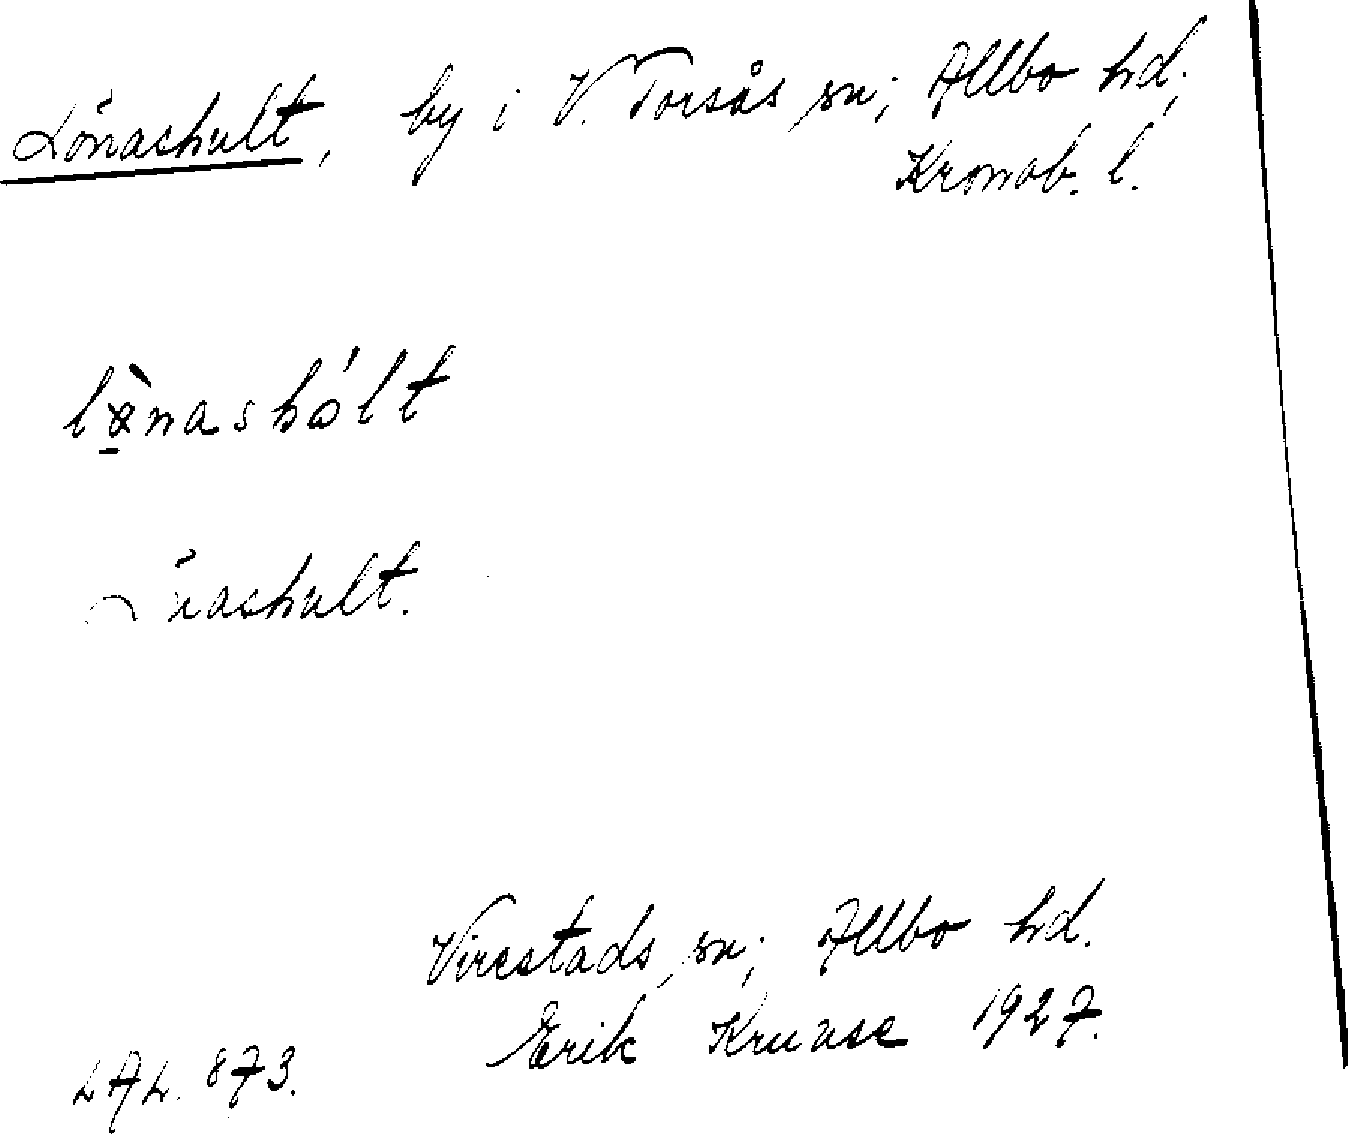 Lönashult, by i V. Torsås sn; Allbo hd;
Kronob. l.
lö̀nashólt
Lönashult.
Virestads sn; Allbo hd.
Erik Kruuse 1927.
LAL. 873.